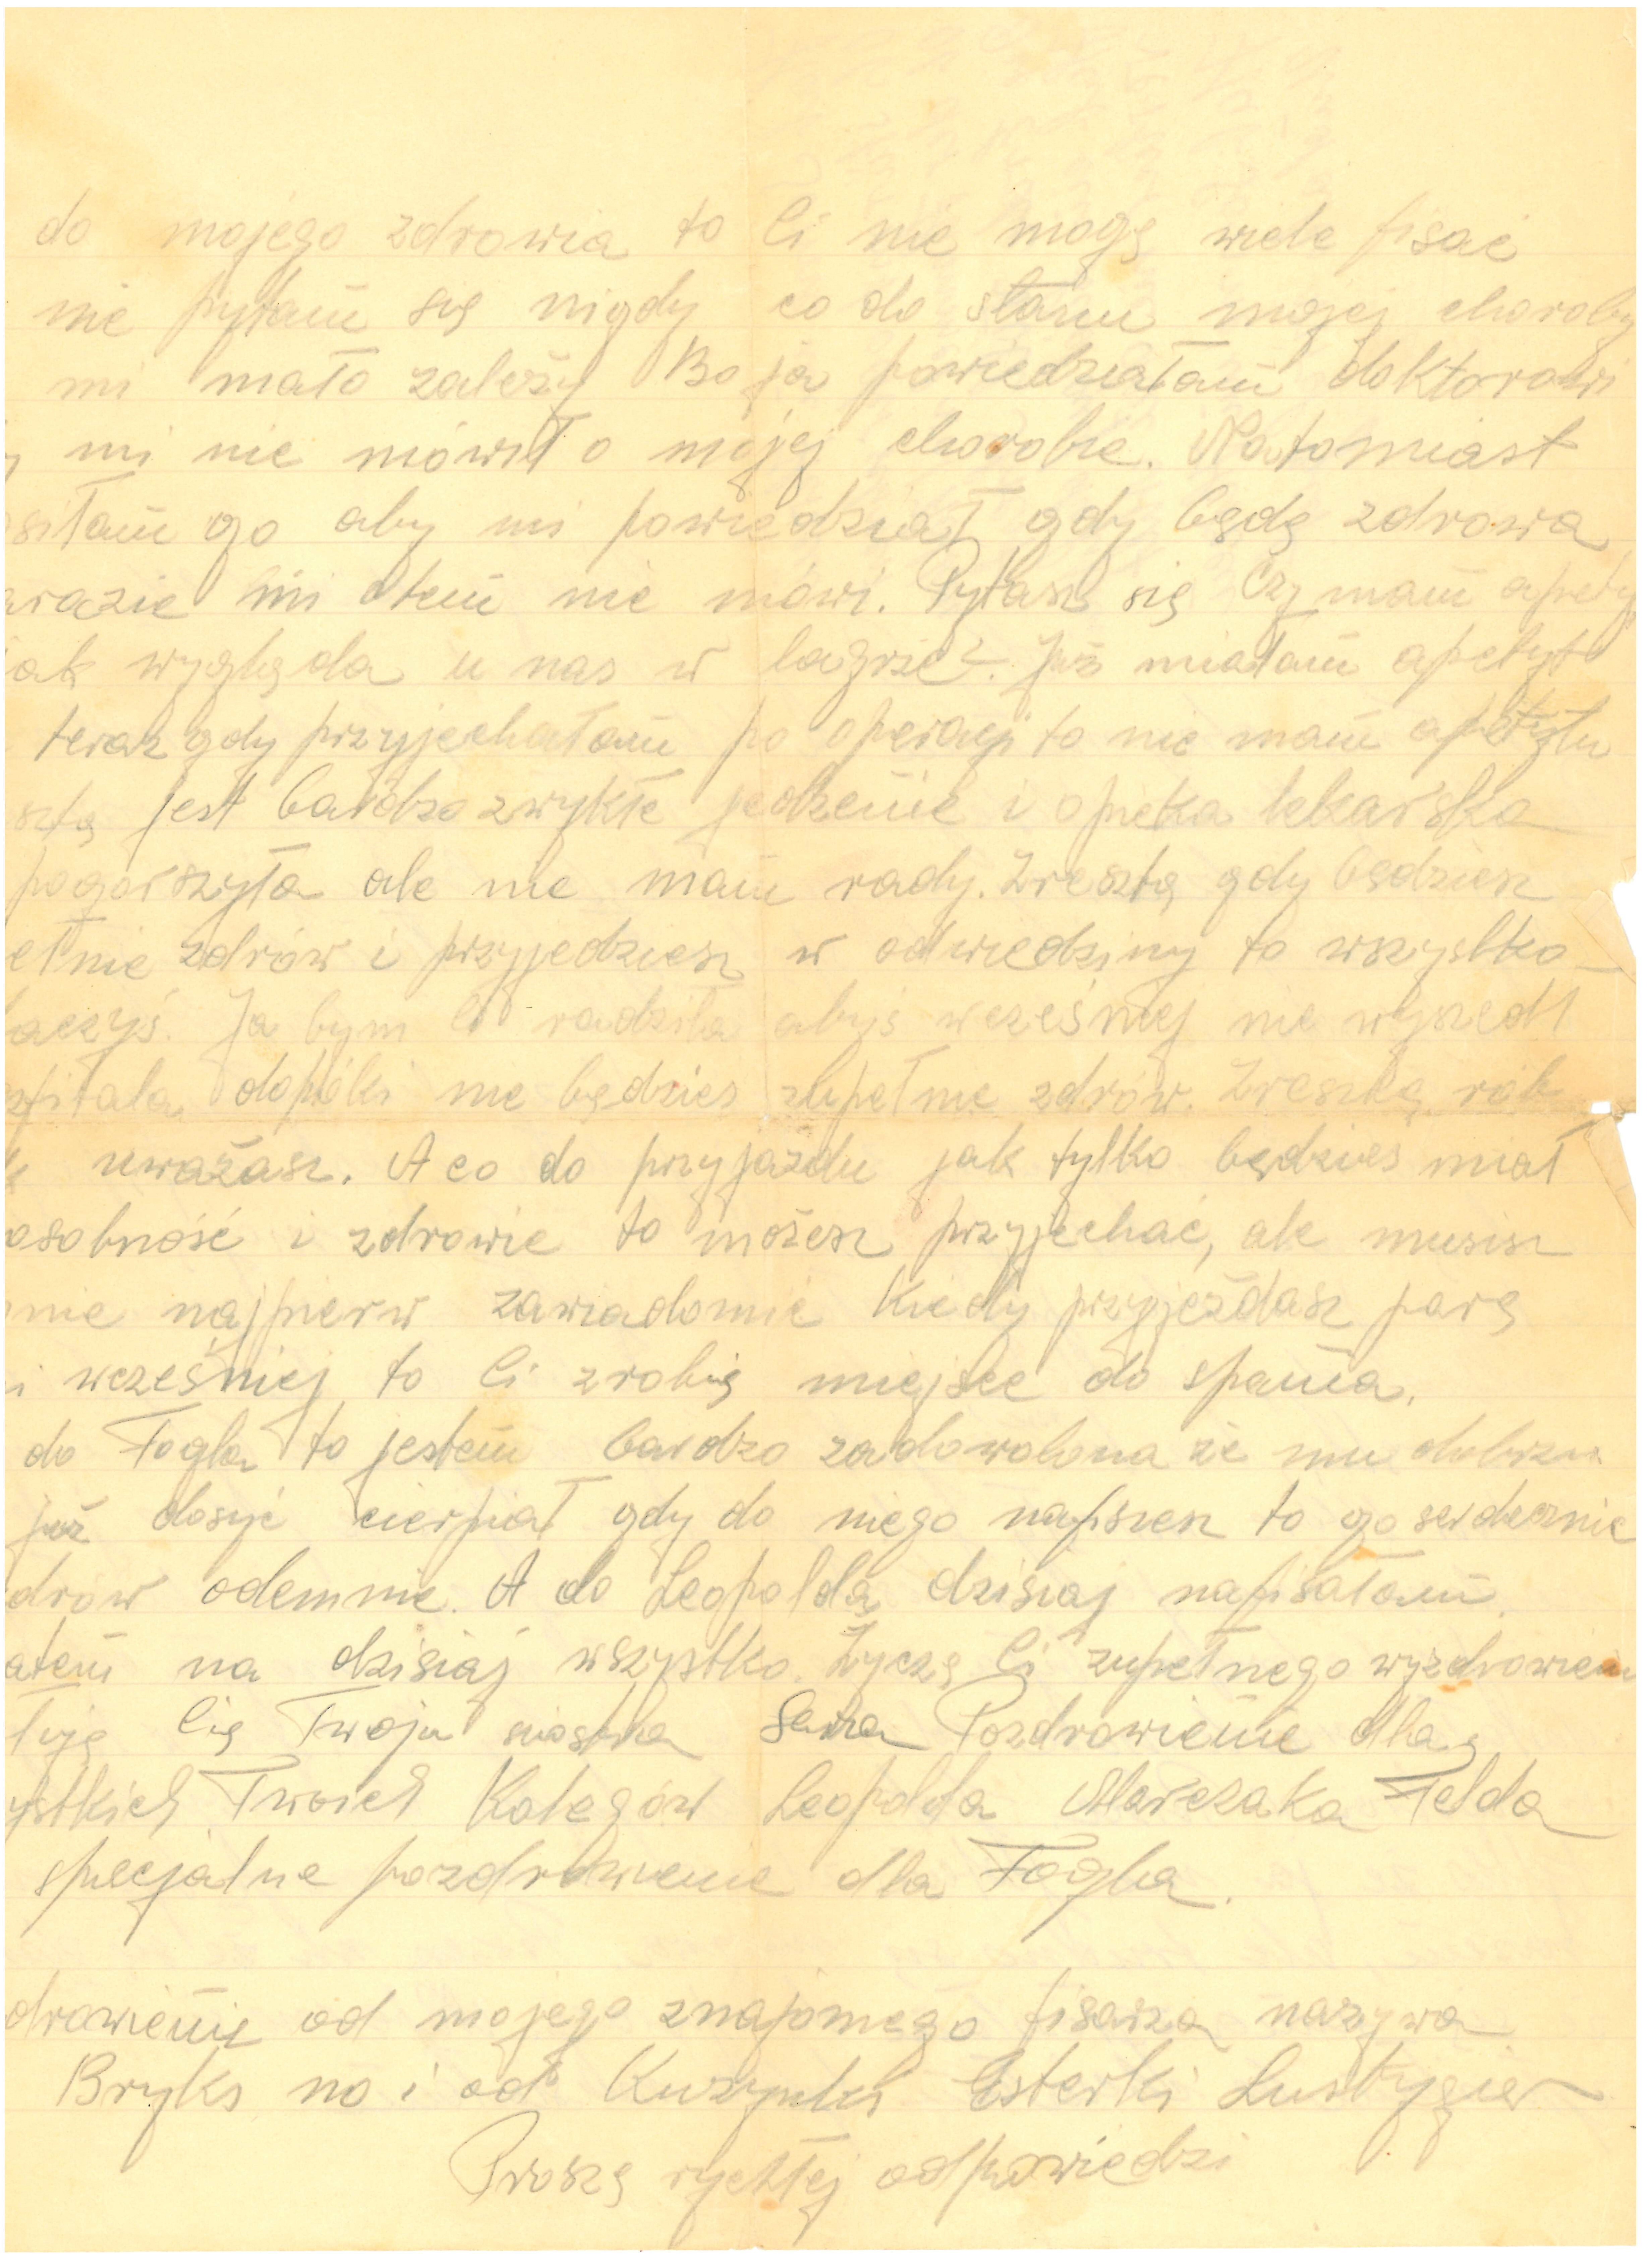 do mojego zdrowia to Ci nie mogę wiele pisać
nie pytam się nigdy co do stanu mojej choroby
mi mało zależy Bo ja powiedziałam doktorowi
mi nie mówił o mojej chorobie. Natomiast
siłam go aby mi powiedział gdy będę zdrowa
arazie mi otem nie mówi. Pytasz się Czy mam apety
jak wygląda u nas w lagrze?. Już miałam apetyt
teraz gdy przyjechałam po operacji to nie mam apetytu
sztą jest bardzo zwykłe jedzenie i opieka lekarska
pogorszyła ale nie mam rady. Zresztą gdy będziesz
ełnie zdrów i przyjedziesz w odwiedziny to wszystko
baczyś. Ja bym Ci radziła abyś wcześniej nie wyszedł
zpitala dopóki nie będzies zupełnie zdrów. Zresztą rób
k uważasz. A co do przyjazdu jak tylko będzies miał
osobność i zdrowie to możesz przyjechać, ale musisz
mnie najpierw zawiadomić Kiedy przyjeżdasz parę
i wcześniej to Ci zrobię miejsce do spania.
do Fogla to jestem bardzo zadowolona że mu dobrze
już dosyć cierpiał gdy do niego napiszesz to go serdecznie
drów odemnie. A do Leopolda dzisiaj napisałam.
atem na dzisiaj wszystko. Życzę Ci zupełnego wyzdrowien
łuję Cię Twoja siostra Sara Pozdrowienie dla
ystkich Twoich Kolegów Leopolda Marczaka Felda
specjalne pozdrowienie dla Fogla.
drowienie od mojego znajomego pisarza nazywa
Bryks no i od Kuzynki Esterki Lustygier
Proszę rychłej odpowiedzi